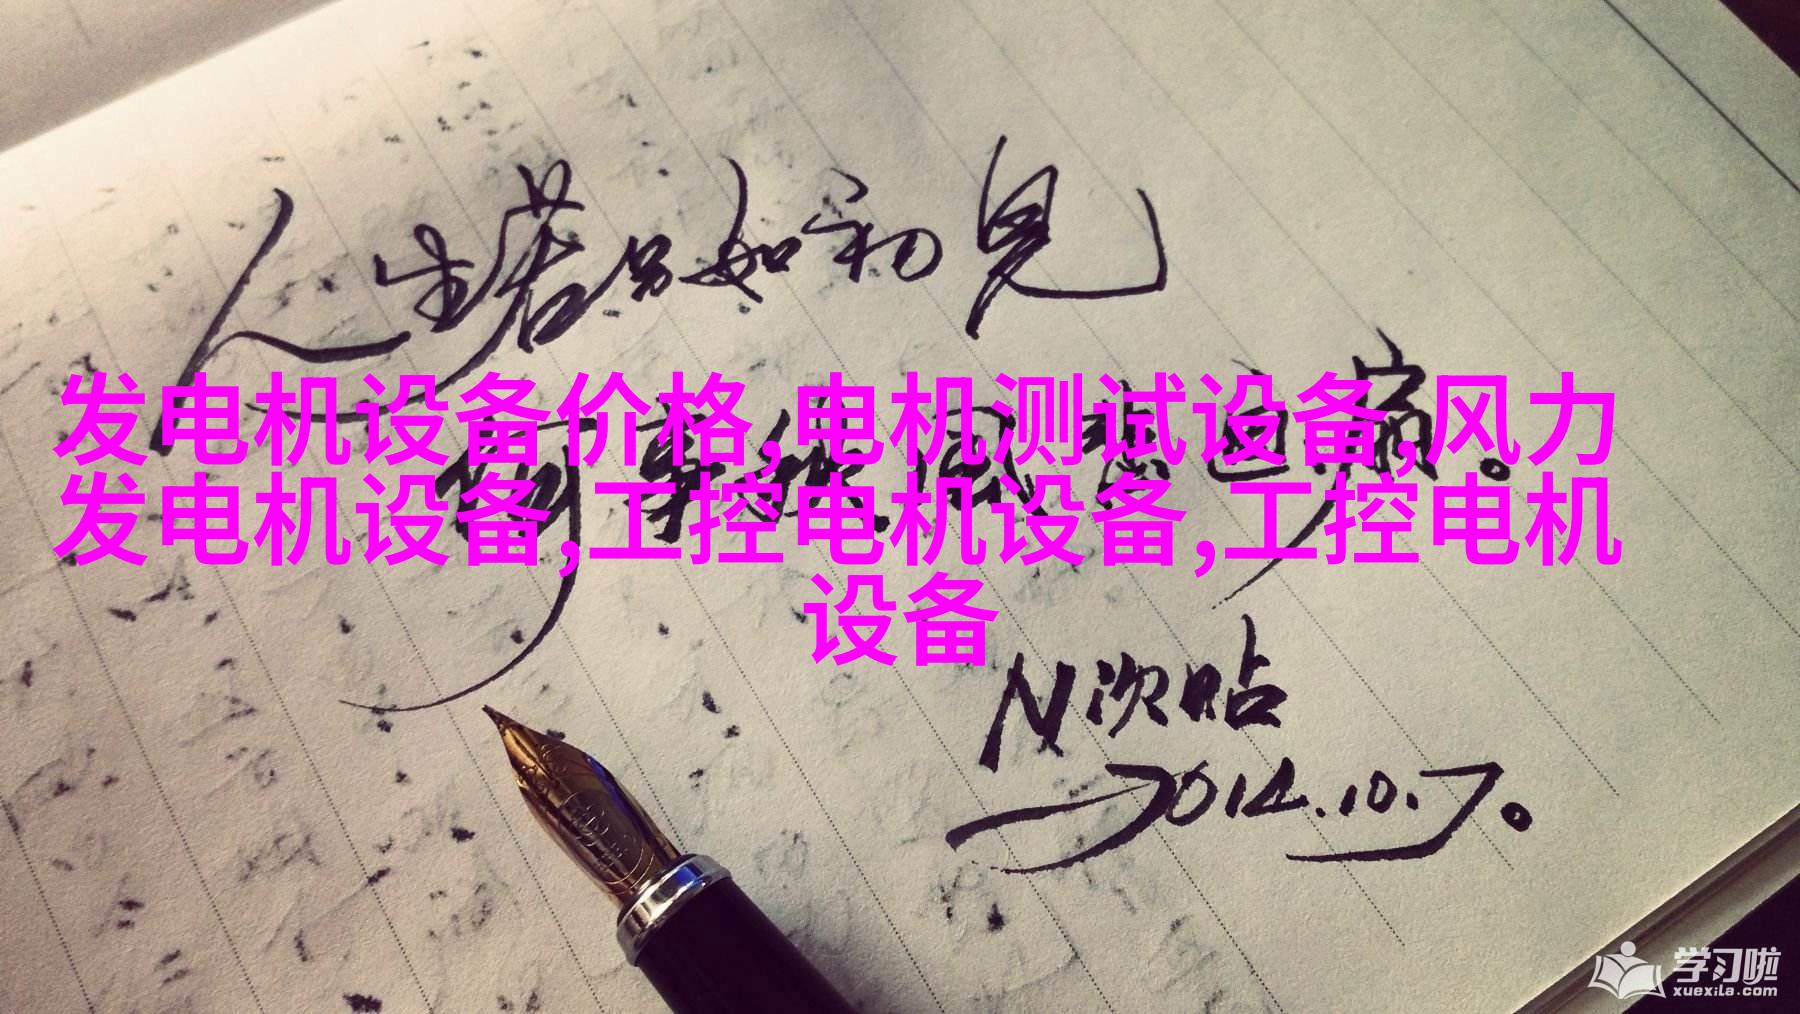 人生若只如初见
何事秋风悲画扇。
发电机设备价格,电机测试设备,风力
发电机设备,工控电机设备,工控电机
设备
N次贴
2014.10.7。
学习啦
xuexila.com